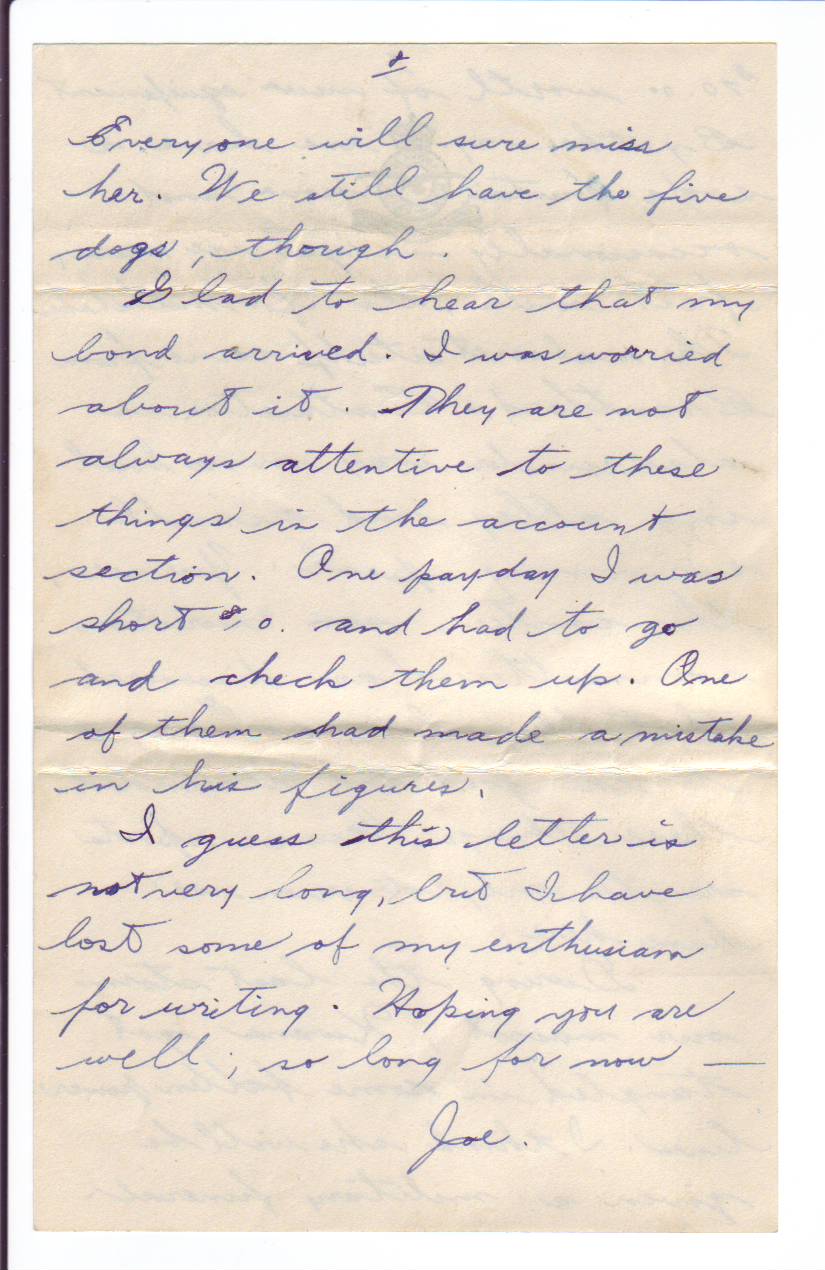 Everyone will sure miss
her. We still have the five
dogs, though.
Glad to hear that my
bond arrived. I was worried
about it. They are not
always attentive to these
things in the account
section. One payday I was
short and had to go
and check them up. One
of them had made a mistake
in his figures.
I guess this letter is
not very long, but I have
lost some of my enthusiasm
for writing. Hoping you are
well; so long for now —
Joe.